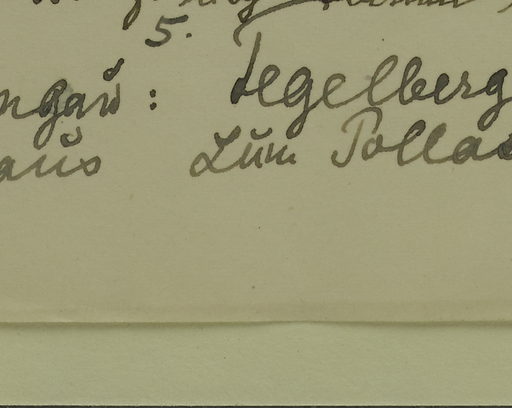 5.
ngau : Tegelberg
aus zum Polla